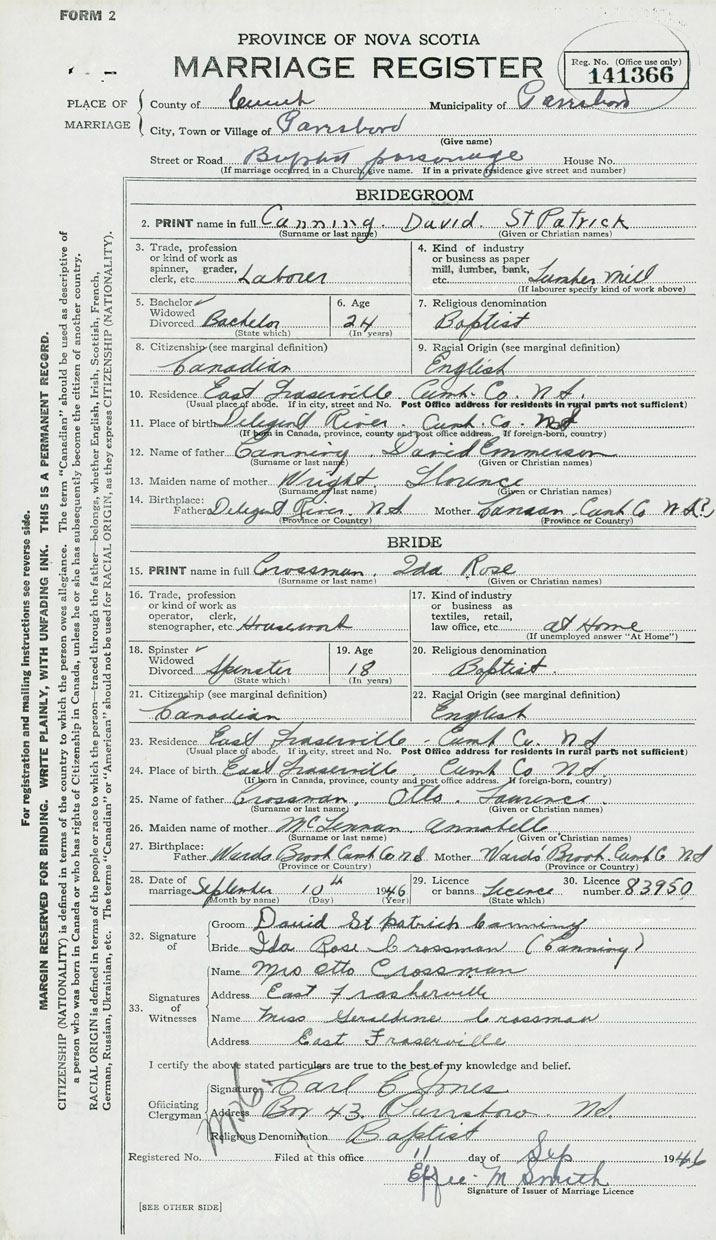 FORM 2
PROVINCE OF NOVA SCOTIA
MARRIAGE REGISTER
Reg. No. (Office use only)
141366
PLACE OF MARRIAGE
County of Cumb Municipality of Parrsboro
City, Town or Village of Parrsboro
(Give name)
Street or Road Baptist parsonage House No.
(If marriage occurred in a Church, give name. If in a private residence give street and number)
BRIDEGROOM
2. PRINT name in full Canning. David. St Patrick
(Surname or last name) (Given or Christian names)
3. Trade, profession or kind of work as spinner, grader, clerk, etc. Laborer
4. Kind of industry or business as paper mill, lumber, bank, etc. Lumber Mill
(If labourer specify kind of work above)
5. Bachelor Widowed Divorced Bachelor
(State which)
6. Age 24
(In years)
7. Religious denomination
Baptist
8. Citizenship (see marginal definition)
Canadian
9. Racial Origin (see marginal definition)
English
10. Residence East Fraserville Cumb. Co. N S.
(Usual place of abode. If in city, street and No. Post Office address for residents in rural parts not sufficient)
11. Place of birth Diligent River. Cumb. Co. N S
(If born in Canada, province, county and post office address. If foreign-born, country)
12. Name of father Canning David Emmerson
(Surname or last name) (Given or Christian names)
13. Maiden name of mother Wright Florence
(Surname or last name) (Given or Christian names)
14. Birthplace:
Father Deligent River. N S Mother Canaan. Cumb Co N S?
(Province or Country) (Province or Country)
BRIDE
15. PRINT name in full Crossman, Ida Rose
(Surname or last name) (Given or Christian names)
16. Trade, profession or kind of work as operator, clerk, stenographer, etc. Housework
17. Kind of industry or business as textiles, retail, law office, etc. at Home
(If unemployed answer "At Home")
18. Spinster Widowed Divorced Spinster
(State which)
19. Age 18
(In years)
20. Religious denomination
Baptist.
21. Citizenship (see marginal definition)
Canadian
22. Racial Origin (see marginal definition)
English
23. Residence East Fraserville - Cumb Co. N S
(Usual place of abode. If in city, street and No. Post Office address for residents in rural parts not sufficient)
24. Place of birth East Fraserville. Cumb Co N S.
(If born in Canada, province, county and post office address. If foreign-born, country)
25. Name of father Crossman, Otto Laurence.
(Surname or last name) (Given or Christian names)
26. Maiden name of mother McLennan Annabelle
(Surname or last name) (Given or Christian names)
27. Birthplace:
Father Wards Brook Cumb Co N S Mother Wards Brook. Cumb Co N S
(Province or Country) (Province or Country)
28. Date of marriage September 10th 1946
(Month by name) (Day) (Year)
29. Licence or banns Licence
(State which)
30. Licence number 83950
32. Signature of
Groom David St patrick Canning
Bride Ida Rose Crossman (Canning)
33. Signatures of Witnesses
Name Mrs Otto Crossman
Address East Frasherville
Name Miss Geraldine Crossman
Address East Fraserville
I certify the above stated particulars are true to the best of my knowledge and belief.
Officiating Clergyman
Signature Carl C Jones
Address Box 43. Parrsboro. N S.
Religious Denomination Baptist
Registered No. Filed at this office 11 day of Sep 1946
Effie M Smith
Signature of Issuer of Marriage Licence
[SEE OTHER SIDE]
For registration and mailing instructions see reverse side.
MARGIN RESERVED FOR BINDING. WRITE PLAINLY, WITH UNFADING INK. THIS IS A PERMANENT RECORD.
CITIZENSHIP (NATIONALITY) is defined in terms of the country to which the person owes allegiance. The term "Canadian" should be used as descriptive of
a person who was born in Canada or who has rights of Citizenship in Canada, unless he or she has subsequently become the citizen of another country.
RACIAL ORIGIN is defined in terms of the people or race to which the person—traced through the father—belongs, whether English, Irish, Scottish, French,
German, Russian, Ukrainian, etc. The terms "Canadian" or "American" should not be used for RACIAL ORIGIN, as they express CITIZENSHIP (NATIONALITY).